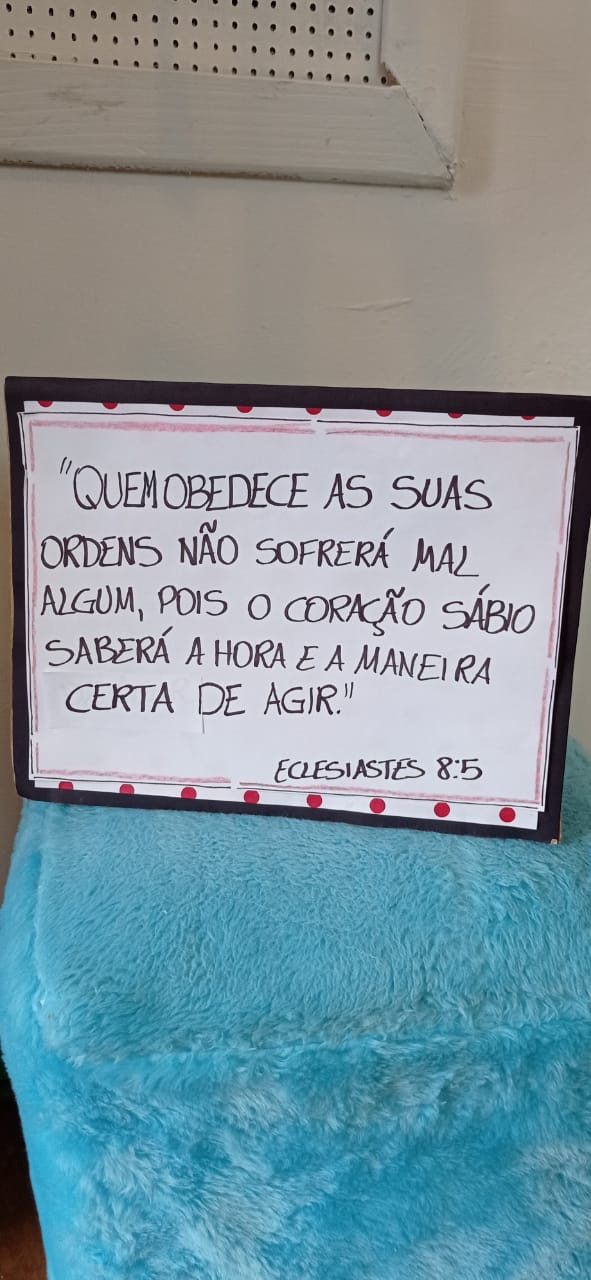 "QUEM OBEDECE AS SUAS
ORDENS NÃO SOFRERÁ MAL
ALGUM, POIS O CORAÇÃO SÁBIO
SABERÁ A HORA E A MANEIRA
CERTA DE AGIR."
ECLESIASTES 8:5